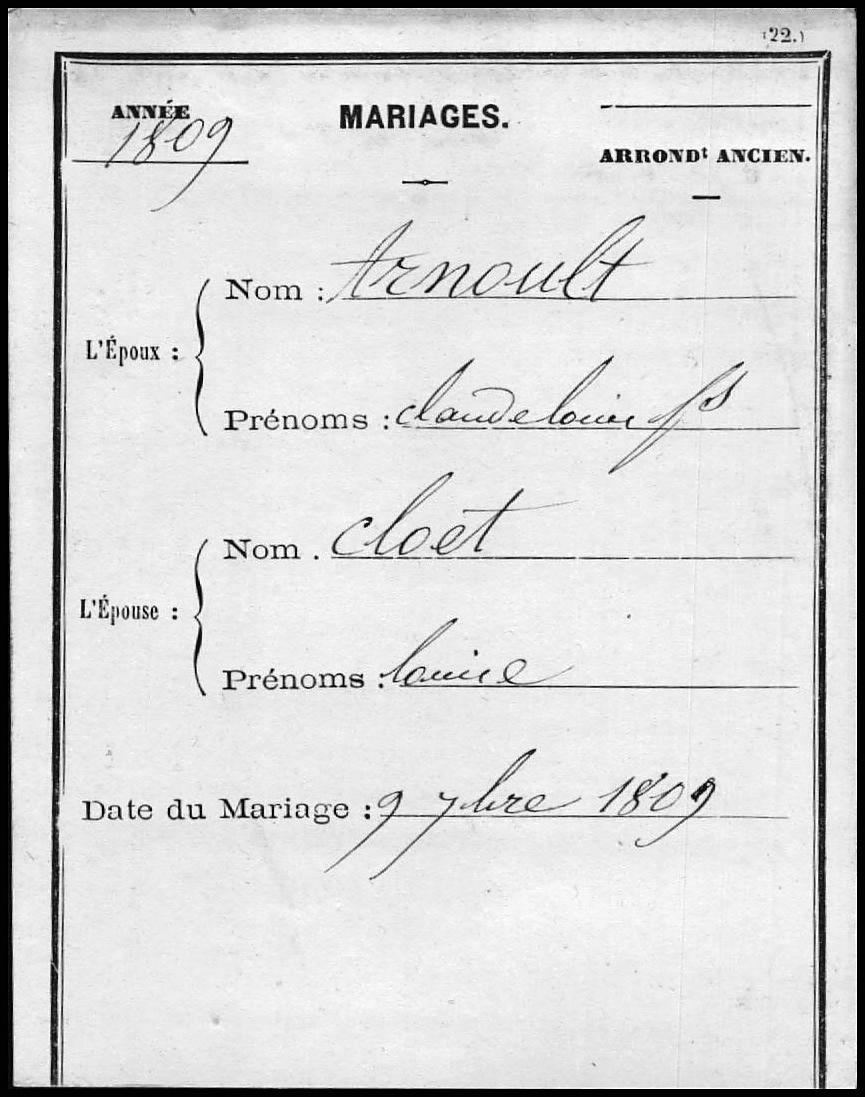 (22.)
ANNÉE
1809
MARIAGES.
ARRONDt ANCIEN.
L'Époux :
Nom : Arnoult
Prénoms : Claude louis fs
L'Épouse :
Nom . Cloet
Prénoms : louise
Date du Mariage : 9 7bre 1809